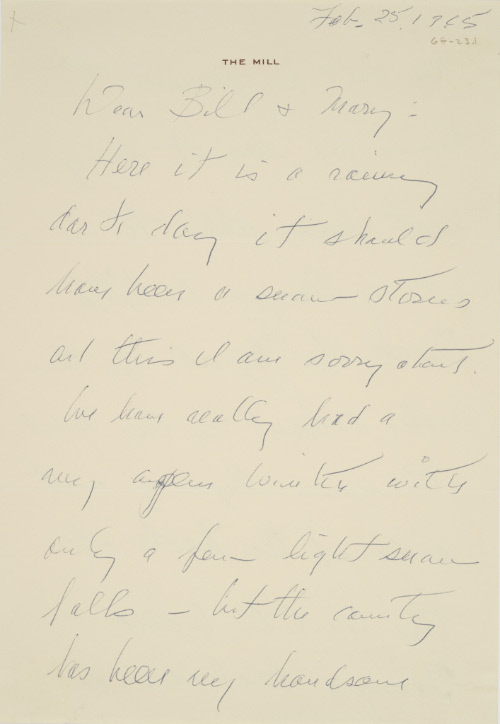 Feb. 25, 1965
THE MILL
Dear Bill & Mary:
Here it is a rainy
dark day it should
have been a snow storm
and this I am sorry about.
We have really had a
very open winter with
only a few light snow
falls – but the country
has been very handsome